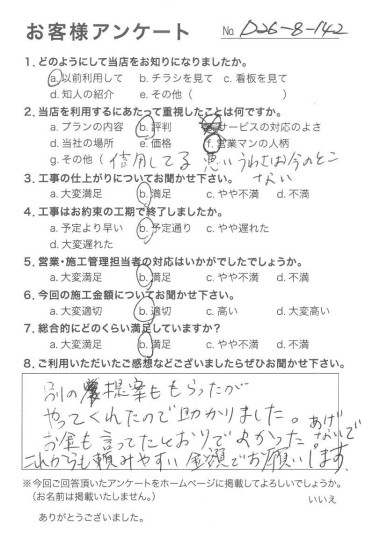 お客様アンケート No. D26-8-142
1. どのようにして当店をお知りになりましたか。
a. 以前利用して b. チラシを見て c. 看板を見て
d. 知人の紹介 e. その他（ ）
2. 当店を利用するにあたって重視したことは何ですか。
a. プランの内容 b. 評判 c. サービスの対応のよさ
d. 当社の場所 e. 価格 f. 営業マンの人柄
g. その他（信用してる 悪いうわさは今のとこ
ない
3. 工事の仕上がりについてお聞かせ下さい。
a. 大変満足 b. 満足 c. やや不満 d. 不満
4. 工事はお約束の工期で終了しましたか。
a. 予定より早い b. 予定通り c. やや遅れた
d. 大変遅れた
5. 営業・施工管理担当者の対応はいかがでしたでしょうか。
a. 大変満足 b. 満足 c. やや不満 d. 不満
6. 今回の施工金額についてお聞かせ下さい。
a. 大変適切 b. 適切 c. 高い d. 大変高い
7. 総合的にどのくらい満足していますか?
a. 大変満足 b. 満足 c. やや不満 d. 不満
8. ご利用いただいたご感想などございましたらぜひお聞かせ下さい。
別の提案ももらったが
やってくれたので助かりました。
お金も言ってたとおりでよかった あげないで
これからも頼みやすい金額でお願いします。
※今回ご回答頂いたアンケートをホームページに掲載してよろしいでしょうか。
（お名前は掲載いたしません。） いいえ
ありがとうございました。